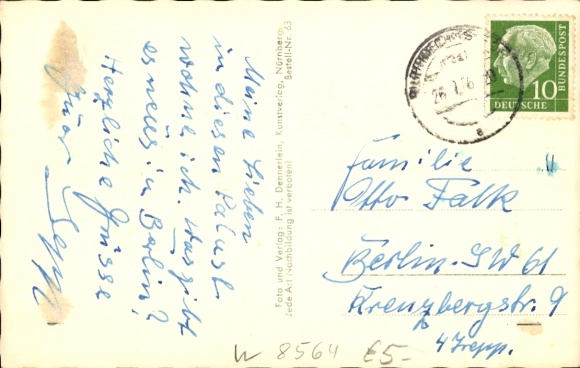 Meine Lieben
in diesen Palast
wohne ich. Was gibt
es neues in Berlin?
Herzliche Grüsse
Euer Sepp
Foto und Verlag: F. H. Dennerlein, Kunstverlag, Nürnberg
Jede Art Nachbildung ist verboten! Bestell-Nr. 63
DEUTSCHE BUNDESPOST
10
a
Familie
Otto Falk
Berlin-SW 61
Kreuzbergstr. 9
4 Trepp.
W 8564 £5-